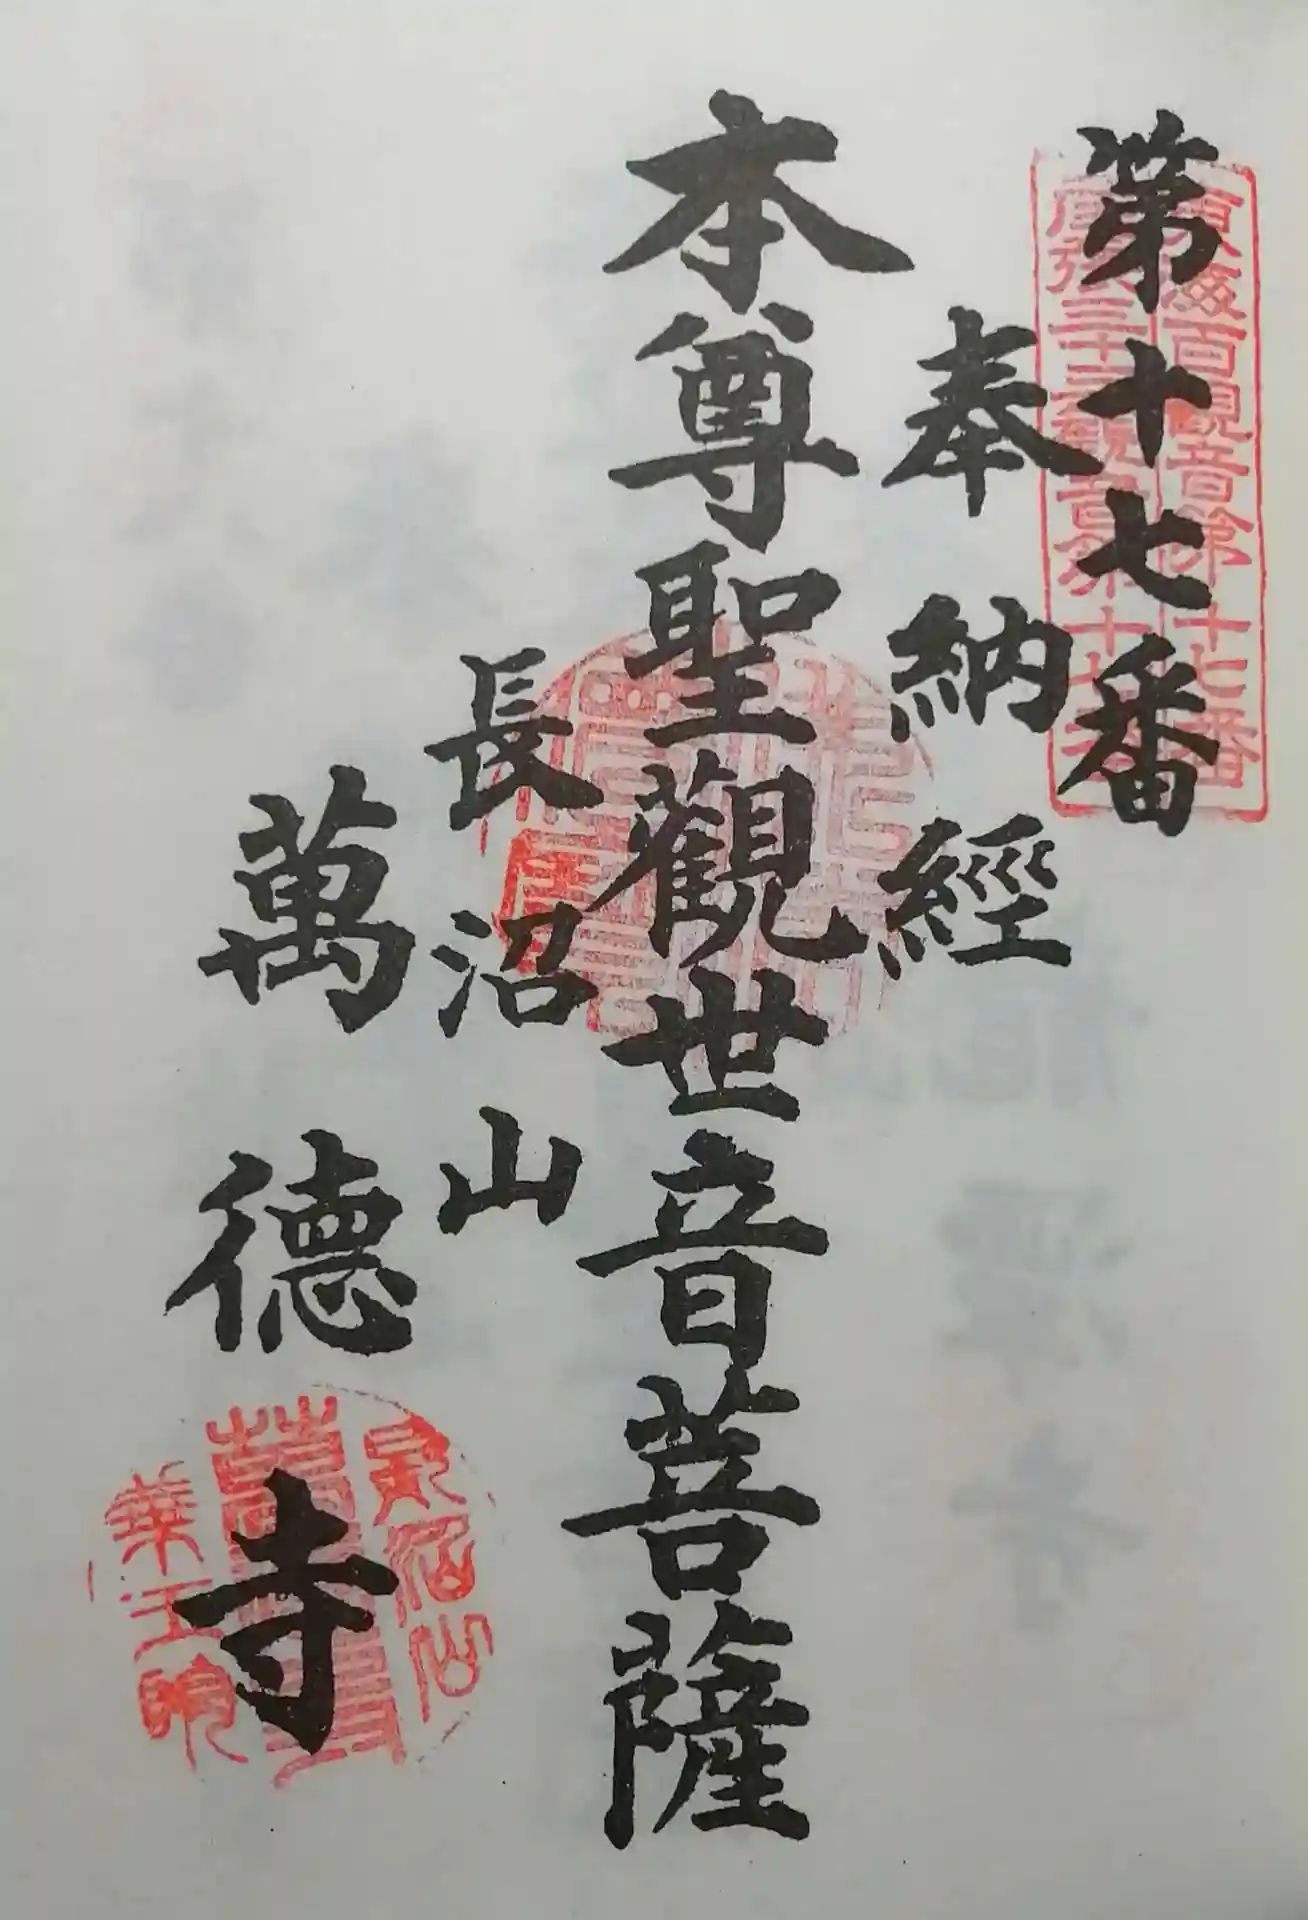 第十七番
東海百観音第十七番
尾張三十三観音第十七番
奉納經
本尊聖觀世音菩薩
長沼山
萬德寺
長沼山
華王院